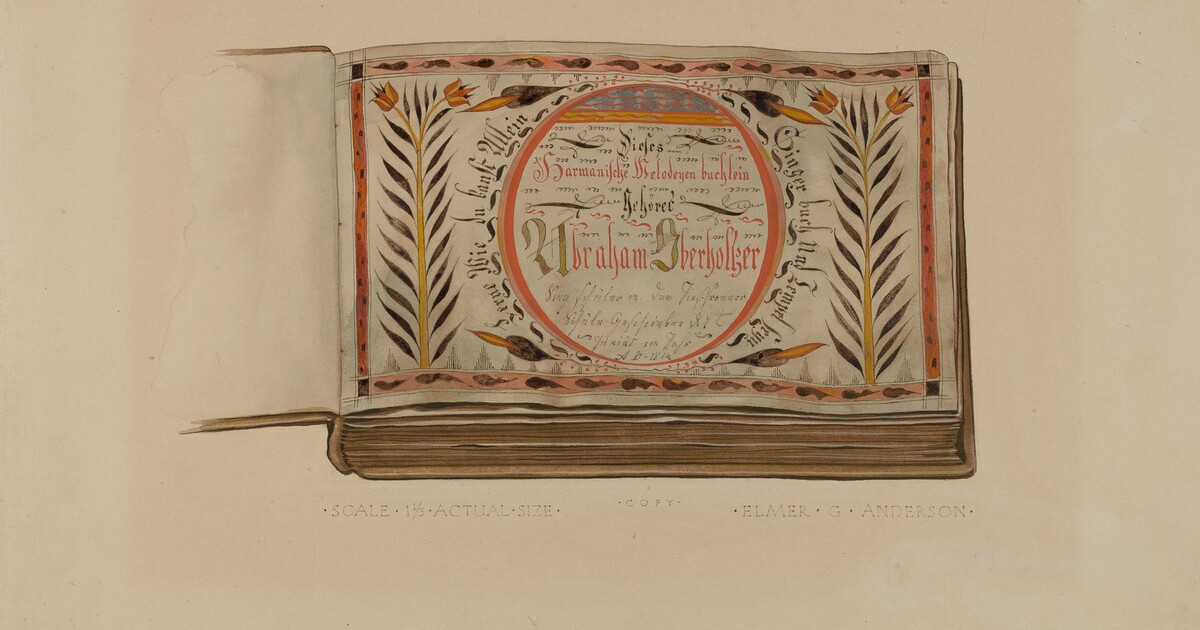 Dieses
Harmanische Melodeyen buchlein
Gehöret
Abraham Oberholtzer
Schuler in der
A D 1814
Lerne Wie du kanst Allein
Singer buch Und Tempel seyn
· SCALE · 1⅓ · ACTUAL · SIZE ·
· COPY ·
· ELMER · G · ANDERSON ·